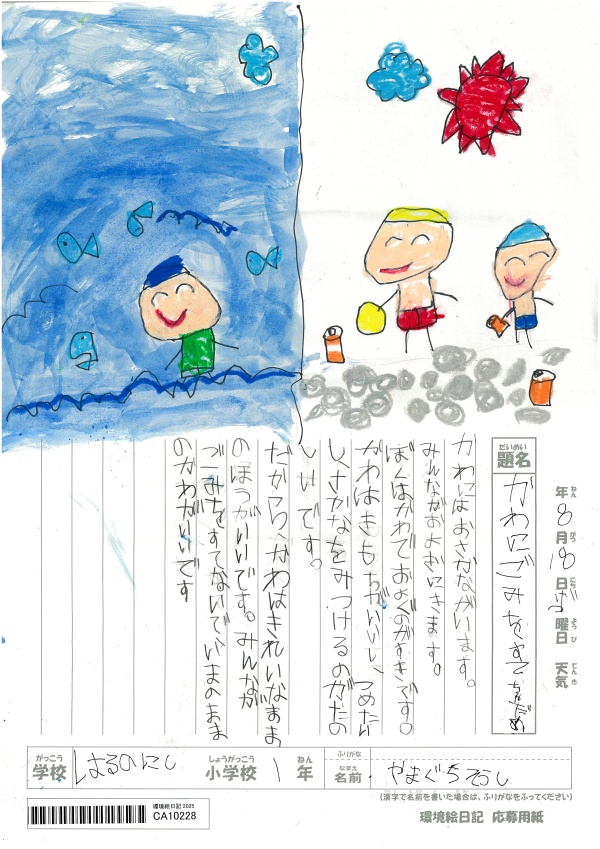 だいめい
題名
がわにごみをすてちゃだめ
ねん がつ にち ようび てんき
年 8 月 18 日 げつ 曜日 天気
かわにはおさかながいます。
みんながおよぎにきます。
ぼくはかわでおよぐのがすきです。
かわはきもちがいいし、つめたい
しさかなをみつけるのがたの
しいです。
だからかわはきれいなまま
のほうがいいです。みんなが
ごみをすてないでいまのまま
のかわがいいです
がっこう しょうがっこう ねん ふりがな なまえ
学校 はるのにし 小学校 1 年 名前 やまぐちそうし
(漢字で名前を書いた場合は、ふりがなをふってください)
環境絵日記 2025
CA10228
環境絵日記 応募用紙